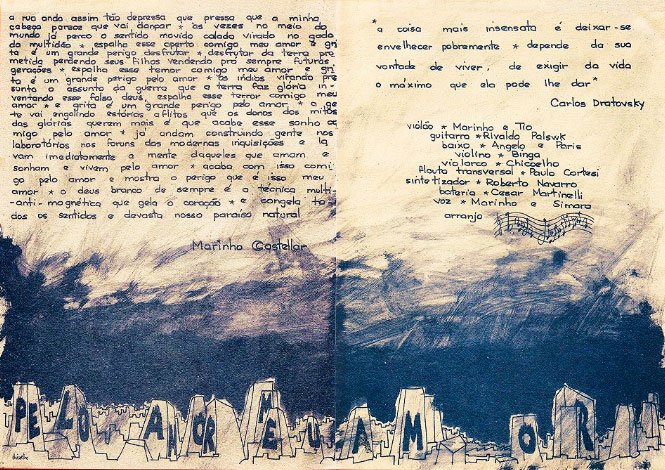 a rua anda assim tão depressa que pressa que a minha
cabeça parece que vai dançar * às vezes no meio do
mundo já perco o sentido movido calado virado no gado
da multidão * espalho esse aperto comigo meu amor e gri
te é um grande perigo desfrutar * desfrutar da terra pro
metida perdendo seus filhos vendendo pra sempre futuras
gerações * espalho esse temor comigo meu amor e gri
to é um grande perigo pelo amor * os índios virando pre
sunto o assunto da guerra que a terra faz glória in-
ventando esse falso deus espalhe esse terror comigo meu
amor * e grita é um grande perigo pelo amor * a ge
te vai engolindo estórias aflitos que os donos dos mitos
das glórias querem mais é que acabe esse sonho co
migo pelo amor * já andam construindo gente nos
laboratórios nos foruns das modernas inquisições e la
vam imediatamente a mente daqueles que amam e
sonham e vivem pelo amor * acaba com isso comi
go pelo amor e mostra o perigo que é isso meu
amor * o deus branco de sempre é a técnica multi-
-anti-magnética que gela o coração * e congela to-
dos os sentidos e devasta nosso paraíso natural
Marinho Castellar
"a coisa mais insensata é deixar-se
envelhecer pobremente * depende da sua
vontade de viver, de exigir da vida
o máximo que ela pode lhe dar"
Carlos Dratovsky
violão * Marinho e Tio
guitarra * Rivaldo Palswk
baixo * Angelo e Paris
violino * Binga
viola arco * Chicoelho
flauta transversal * Paulo Cortesi
sintetizador * Roberto Navarro
bateria * Cesar Martinelli
voz * Marinho e Simara
arranjo
PELO AMOR MEU AMOR